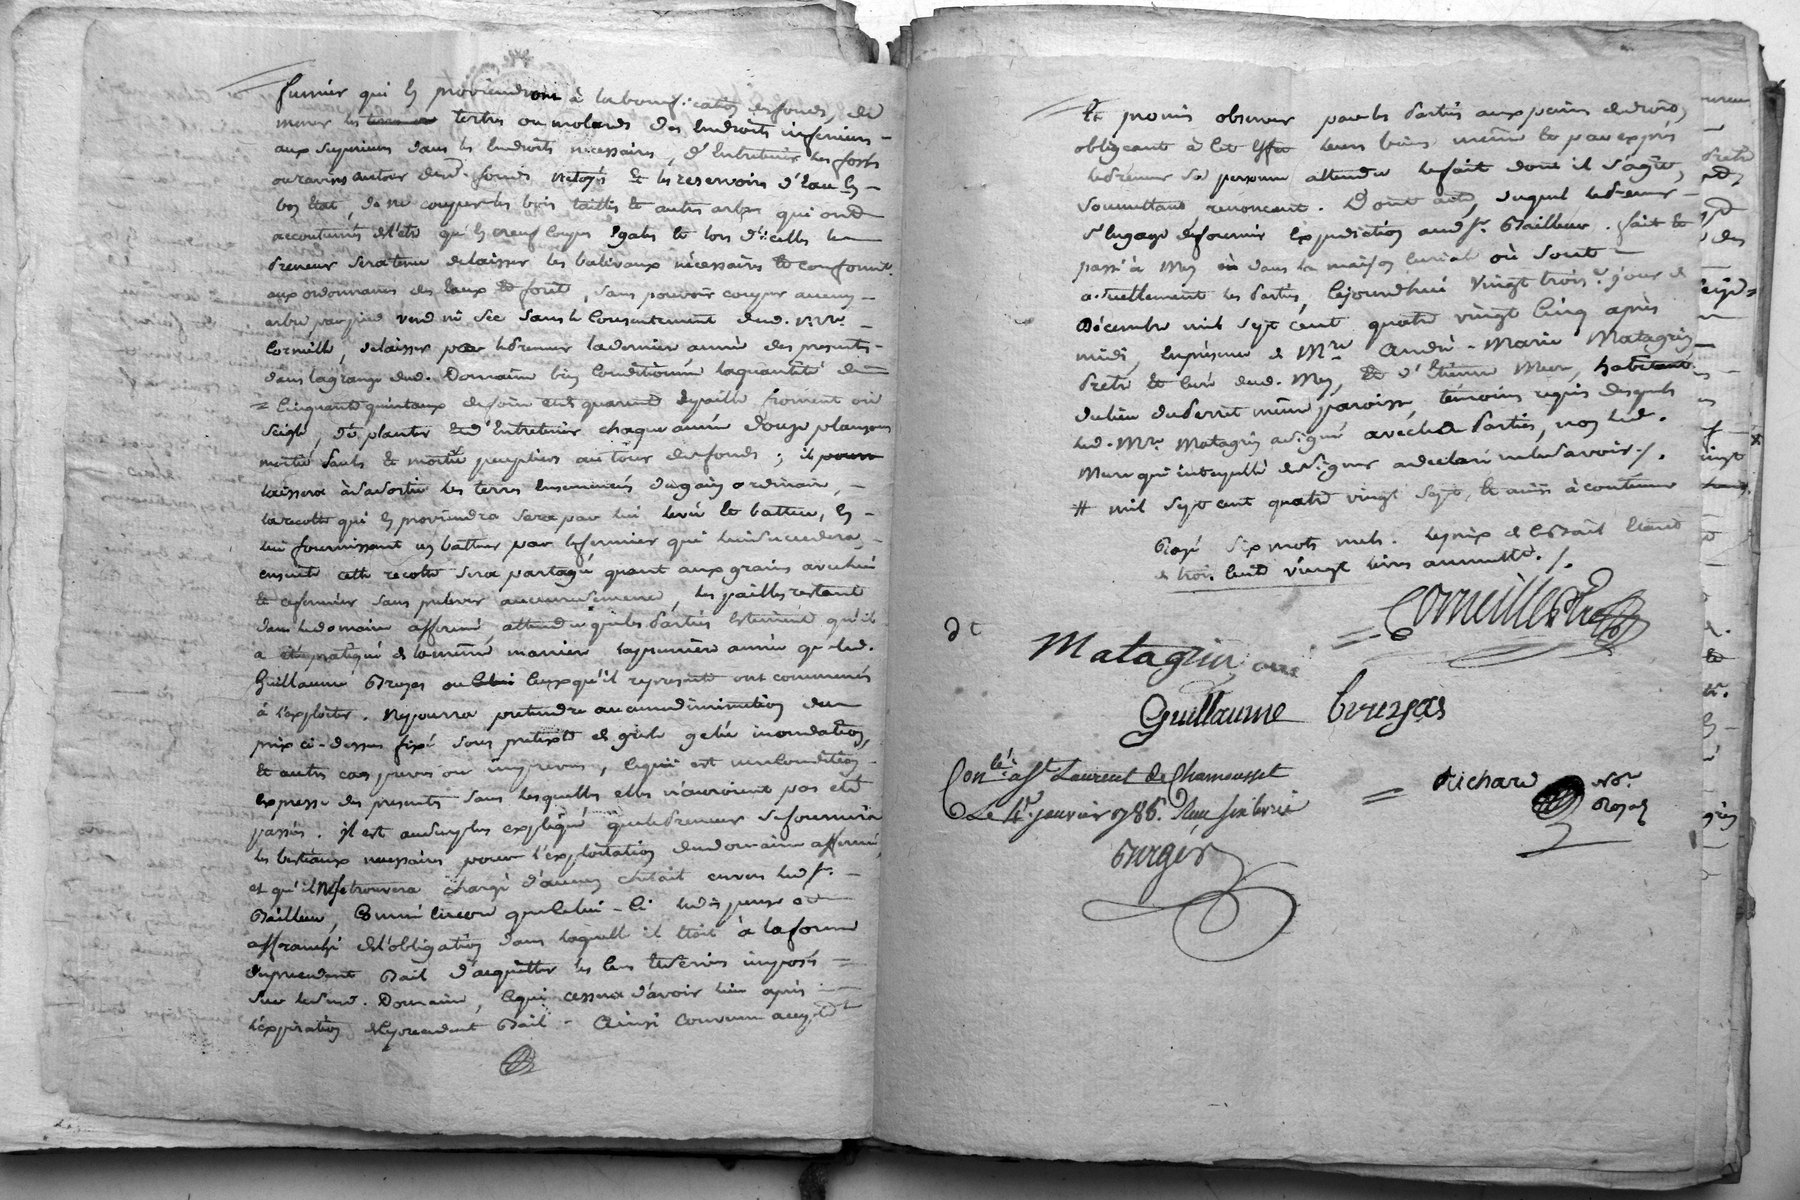 fumier qui en proviendront à la bonification des fonds, de
mener les tertres ou molards des Endroits inferieurs
aux superieurs dans les Endroits necessaires, d'Entretenir les fossés
ou ravins autour desd. fonds netoyés Et les reservoirs d'Eau En
bon Etat, de ne couper les bois taillis Et autres arbres qui ont
accoutumés de l'être qu'En neuf Coupes Egales Et lors d'icelles le
Preneur sera tenu de laisser les balivaux nécessaires Et conformt.
aux ordonnances des Eaux Et forêt, sans pouvoir couper aucun
arbre par pied verd ni sec sans le Consentement dud. Mre.
Corneille, de laisser par le Preneur la derniere année des presentes
dans la grange dud. Domaine bien Conditionné la quantité de
= Cinquante quintaux de foin Et quarante de paille froment ou
Seigle, de planter Et d'Entretenir chaque année douze plansons
moitié Saules Et moitié peupliers au tour des fonds ; il
laissera à sa sortie les terres Ensemencés du gain ordinaire,
la recolte qui En proviendra sera par lui levée Et battue, En
lui fournissant un batteur par le fermier qui lui succedera,
ensuite cette recolte sera partagée quant aux grains avec lui
Et ce fermier sans prelever aucune semence, les pailles restant
dans le domaine affermé, attendu que les Parties Estiment qu'il
a été pratiqué de la même maniere la premiere année que led.
Guillaume Brozas ou Ceux qu'il represente ont commencés
à l'exploiter. Ne pourra pretendre aucune diminution du
prix ci-dessus fixé sous pretexte de grêle gelée inondation,
Et autres cas prevus ou imprevus, Ce qui est une Condition
Expresse des presentes sans lesquelles elles n'auroient pas été
passés. Il est au surplus expliqué que le Preneur se fournira
les bestiaux necessaires pour l'exploitation dud. domaine affermé,
et qu'il ne se trouvera chargé d'aucun cheptait envers led. Sr.
Bailleur, Comme Encore que celui-Ci le dispense et
affranchi de l'obligation dans laquelle il Etoit à la forme
du precedent Bail d'acquitter les Cens Et servis imposés
sur le susd. Domaine, Ce qui cessera d'avoir lieu après
l'expiration de le precedent Bail - Ainsi Convenu accepté
Et promis observer par les Parties aux peines de droit,
obligeant à Cet Effet leurs biens même Et par exprès
le Preneur sa personne attendu le fait dont il s'agit,
soumettant, renonçant. Dont acte, duquel le Preneur
s'Engage de fournir Expedition aud. Sr. Bailleur. fait Et
passé à Mey dans la maison Curiale où sont
actuellement les Parties, Cejourdhui Vingt trois.e jour de
Décembre mil sept cent quatre vingt Cinq après
midi, En présence de Mre. André-Marie Matagrin
Prêtre Et Curé dud. Mey, Et d'Etienne Mure, habitant
du lieu du Perret même paroisse, témoins requis desquels
led. Mre. Matagrin a signé avec les Parties, non led.
Mure qui interpellé de signer a declaré ne le savoir ./.
# mil sept cent quatre vingt sept, Et ainsi à continuer
Rayé six mots nuls. Le prix de ce Bail Etant
de trois Cent vingt livres annuelle. /.
Corneille Ptre
Matagrin curé
Guillaume brozas
Conlé. à St Laurent de Chamousset
Le 4e. janvier 1786. Reçu
Burger
Richard Nre.
Royal